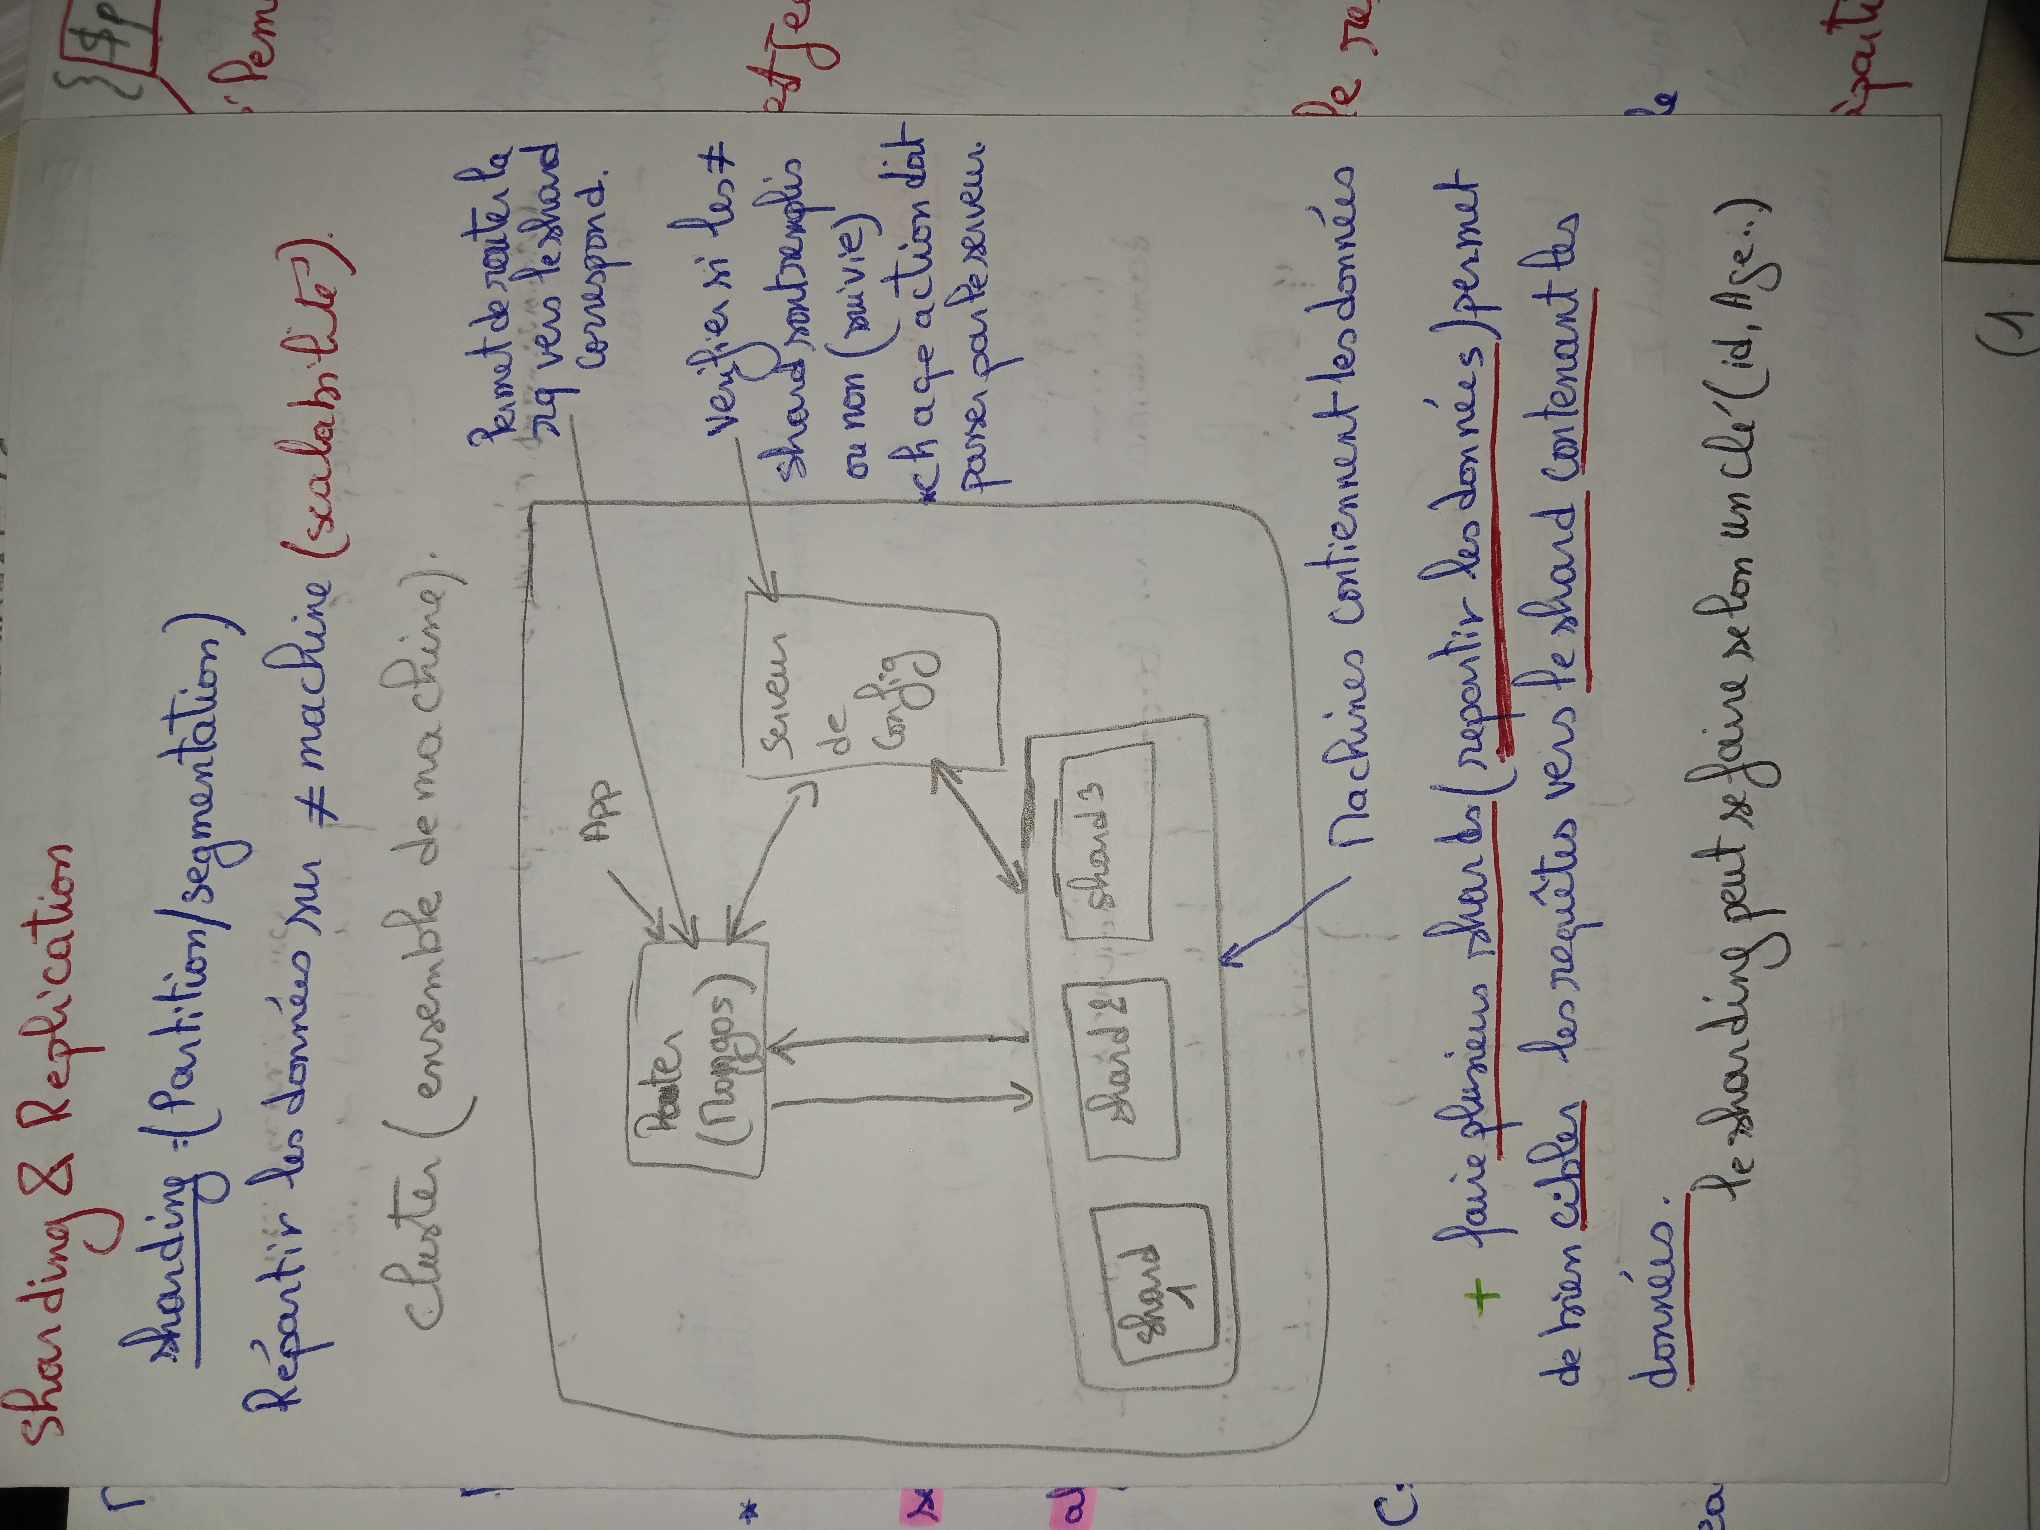 Sharding & Replication
sharding =(Partition/segmentation)
Répartir les données sur ≠ machine (scalabilité).
Cluster (ensemble de machine).
Permet de router la
rq vers le shard
correspond.
App
Router
(Mongos)
Serveur
de
Config
verifier si les ≠
shard sont remplis
ou non (suivie)
*chaqe action doit
passer par le serveur.
shard
1
shard 2
shard 3
Machines contiennent les données
+ faire plusieurs shards (repartir les données) permet
de bien cibler les requêtes vers le shard contenant les
données.
le sharding peut se faire selon un clé (id, Age..)
{ $p
Pem
*
se
al
est Je
C
le re
le
ea
iparti
(1